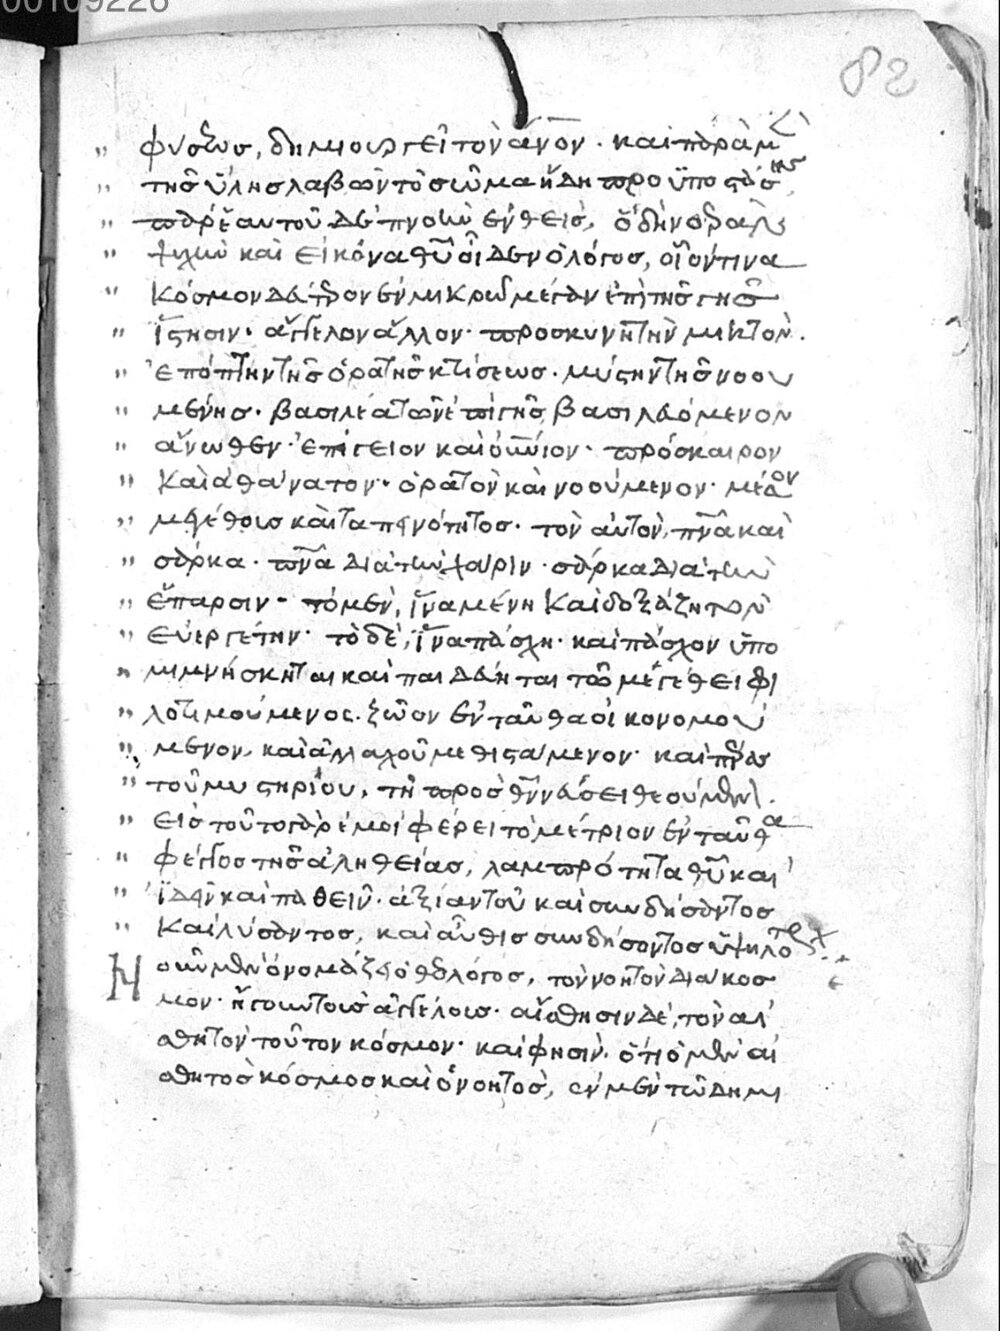 00109226
82
φύσεως, δημιουργεῖ τὸν ἄνον· καὶ παρὰ μ
τῆς ὕλης λαβὼν τὸ σῶμα ἤδη προϋποστάσης
παρ' ἑαυτοῦ δὲ πνοὴν ἐνθεὶς, ὃ δὴ νοερὰν
ψυχὴν καὶ εἰκόνα θῦ οἶδεν ὁ λόγος, οἷόν τινα
κόσμον δεύτερον ἐν μικρῷ μέγαν ἐπὶ τῆς γῆς
ἵστησιν· ἄγγελον ἄλλον· προσκυνητὴν μικτὸν.
ἐπόπτην τῆς ὁρατῆς κτίσεως· μύστην τῆς νοου
μένης· βασιλέα τῶν ἐπὶ γῆς βασιλευόμενον
ἄνωθεν· ἐπίγειον καὶ οὐνιον· πρόσκαιρον
καὶ ἀθάνατον· ὁρατὸν καὶ νοούμενον· μέσον
μεγέθους καὶ ταπεινότητος· τὸν αὐτὸν, πνα καὶ
σάρκα· πνα διὰ τὴν χάριν· σάρκα διὰ τὴν
ἔπαρσιν· τὸ μὲν, ἵνα μένη καὶ δοξάζη τὸν
εὐεργέτην· τὸ δὲ, ἵνα πάσχη· καὶ πάσχον ὑπο
μιμνήσκηται καὶ παιδεύηται τῶ μεγέθει φι
λοτιμούμενος. ζῶον ἐνταῦθα οἰκονομού
μενον, καὶ ἀλλαχοῦ μεθιστάμενον· καὶ πέρας
τοῦ μυστηρίου, τῆ πρὸς θν νεύσει θεούμενον.
εἰς τοῦτο γὰρ ἐμοὶ φέρει τὸ μέτριον ἐνταῦθα
φέγγος τῆς ἀληθείας, λαμπρότητα θῦ καὶ
ἰδεῖν καὶ παθεῖν· ἀξίαν τοῦ καὶ συνδήσαντος
καὶ λύσοντος, καὶ αὖθις συνδήσοντος ὑψηλότερον
Νοῦν μὲν ὀνομάζει ὁ θεολόγος, τὸν νοητὸν διάκοσ
μον· ἤγουν τοὺς ἀγγέλους· αἴσθησιν δὲ, τὸν αἰ
σθητὸν τοῦτον κόσμον· καὶ φησὶν, ὅτι ὁ μὲν αἰ
σθητὸς κόσμος καὶ ὁ νοητὸς, ἐν μὲν τῶ δημι